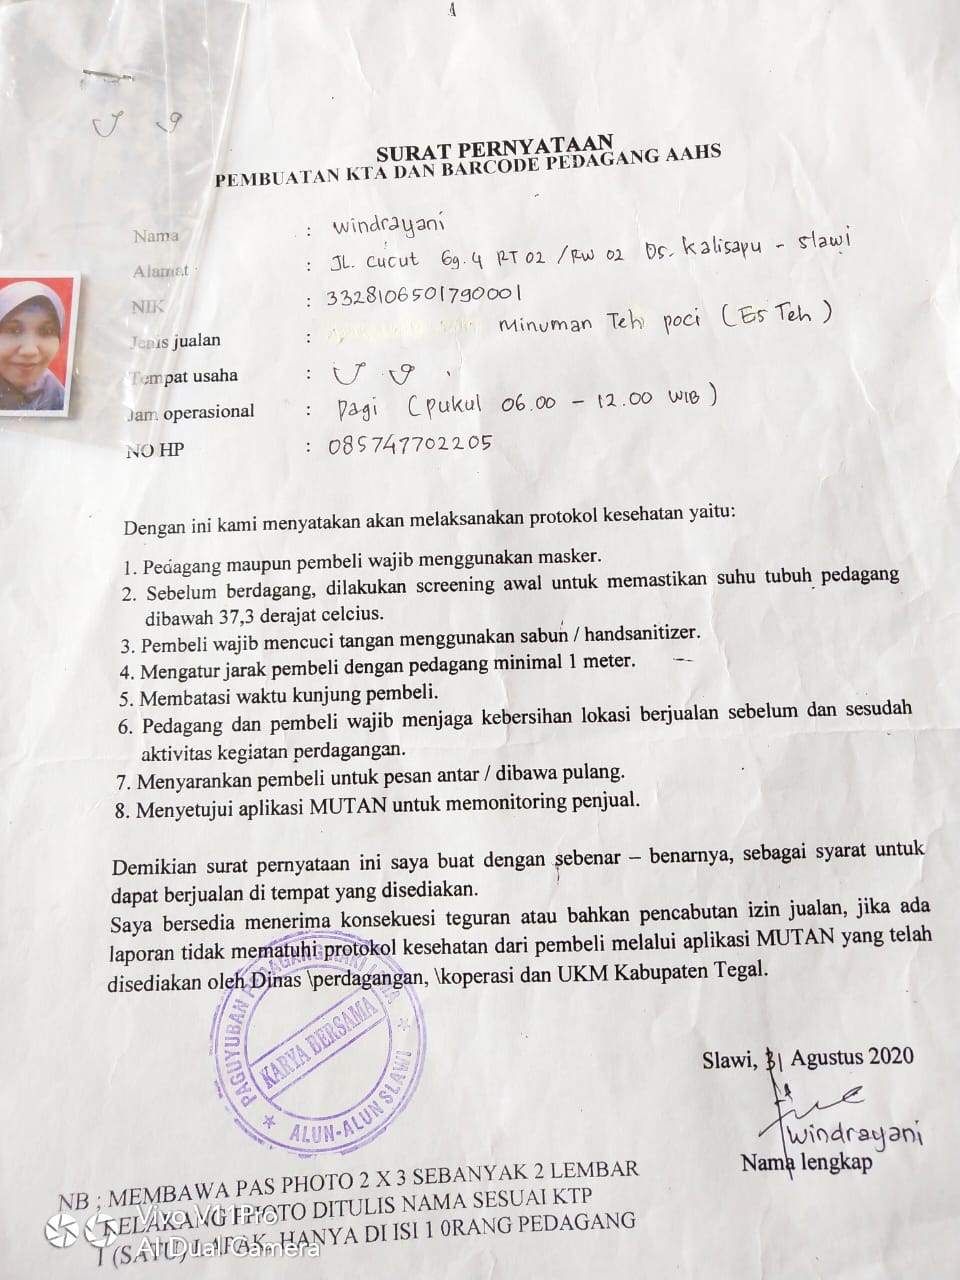 SURAT PERNYATAAN
PEMBUATAN KTA DAN BARCODE PEDAGANG AAHS
Nama : Windrayani
Alamat : JL. Cucut Gg. 4 RT 02 / RW 02 Ds. Kalisapu - Slawi
NIK : 3328106501790001
Jenis jualan : Minuman Teh poci (Es Teh)
Tempat usaha :
Jam operasional : Pagi (pukul 06.00 - 12.00 WIB)
NO HP : 085747702205
Dengan ini kami menyatakan akan melaksanakan protokol kesehatan yaitu:
1. Pedagang maupun pembeli wajib menggunakan masker.
2. Sebelum berdagang, dilakukan screening awal untuk memastikan suhu tubuh pedagang
dibawah 37,3 derajat celcius.
3. Pembeli wajib mencuci tangan menggunakan sabun / handsanitizer.
4. Mengatur jarak pembeli dengan pedagang minimal 1 meter.
5. Membatasi waktu kunjung pembeli.
6. Pedagang dan pembeli wajib menjaga kebersihan lokasi berjualan sebelum dan sesudah
aktivitas kegiatan perdagangan.
7. Menyarankan pembeli untuk pesan antar / dibawa pulang.
8. Menyetujui aplikasi MUTAN untuk memonitoring penjual.
Demikian surat pernyataan ini saya buat dengan sebenar – benarnya, sebagai syarat untuk
dapat berjualan di tempat yang disediakan.
Saya bersedia menerima konsekuesi teguran atau bahkan pencabutan izin jualan, jika ada
laporan tidak mematuhi protokol kesehatan dari pembeli melalui aplikasi MUTAN yang telah
disediakan oleh Dinas \perdagangan, \koperasi dan UKM Kabupaten Tegal.
PAGUYUBAN PEDAGANG KAKI LIMA
KARYA BERSAMA
ALUN-ALUN SLAWI
Slawi, 31 Agustus 2020
Windrayani
Nama lengkap
NB ; MEMBAWA PAS PHOTO 2 X 3 SEBANYAK 2 LEMBAR
BELAKANG PHOTO DITULIS NAMA SESUAI KTP
1 (SATU) LAPAK, HANYA DI ISI 1 0RANG PEDAGANG
Vivo V11Pro
AI Dual Camera